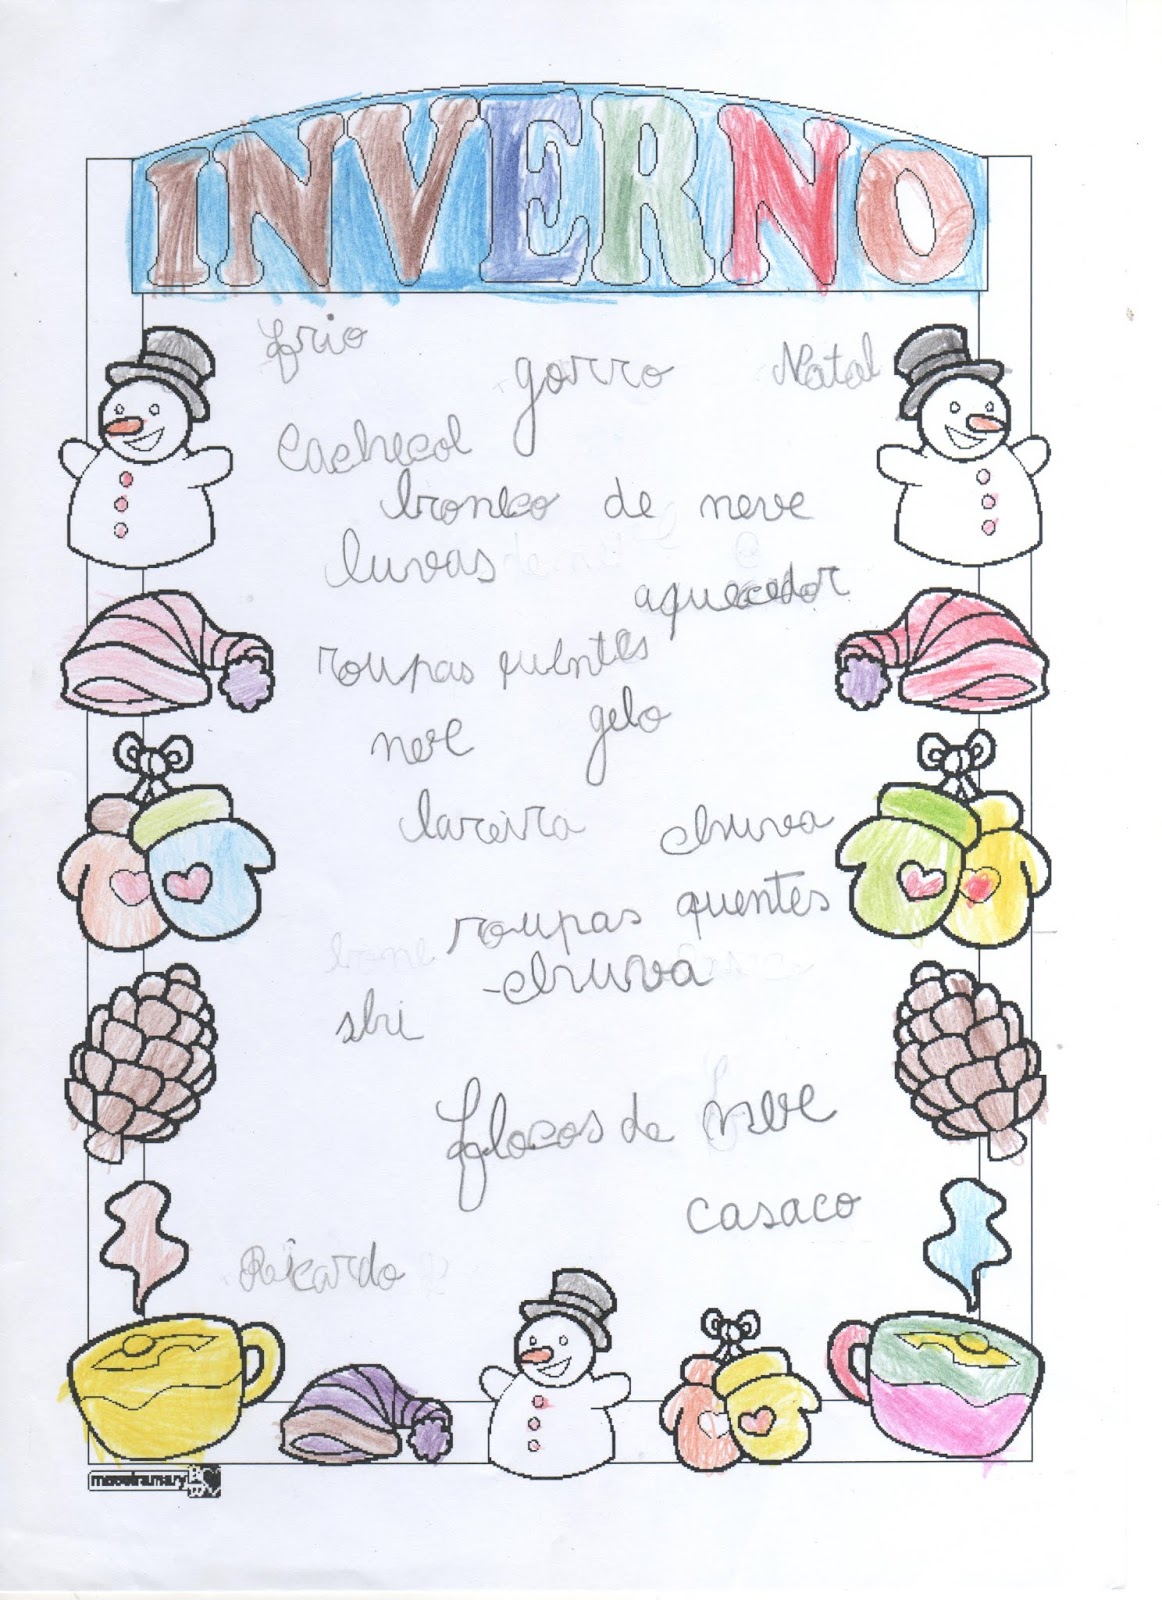 INVERNO
frio
gorro
Natal
Cachecol
boneco de neve
luvas
aquecedor
roupas quentes
neve
gelo
lareira
chuva
roupas quentes
-chuva
ski
flocos de neve
casaco
Ricardo